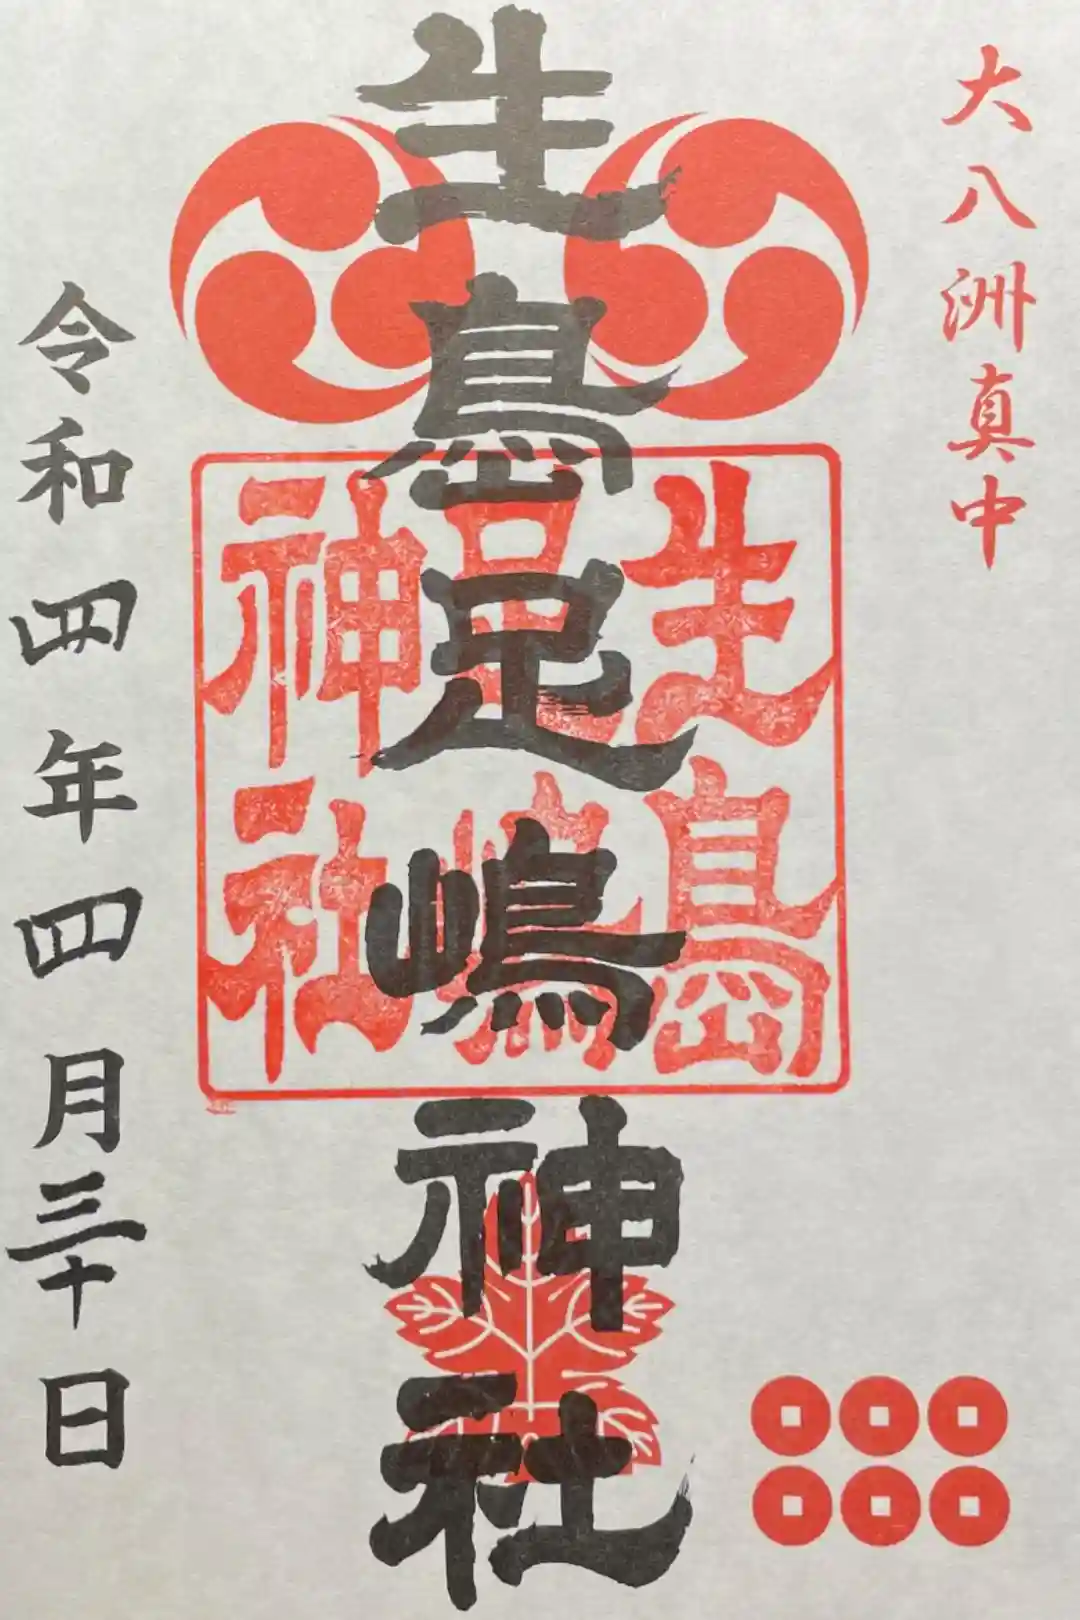 大八洲真中
生島足嶋神社
生島
足嶋
神社
令和四年四月三十日